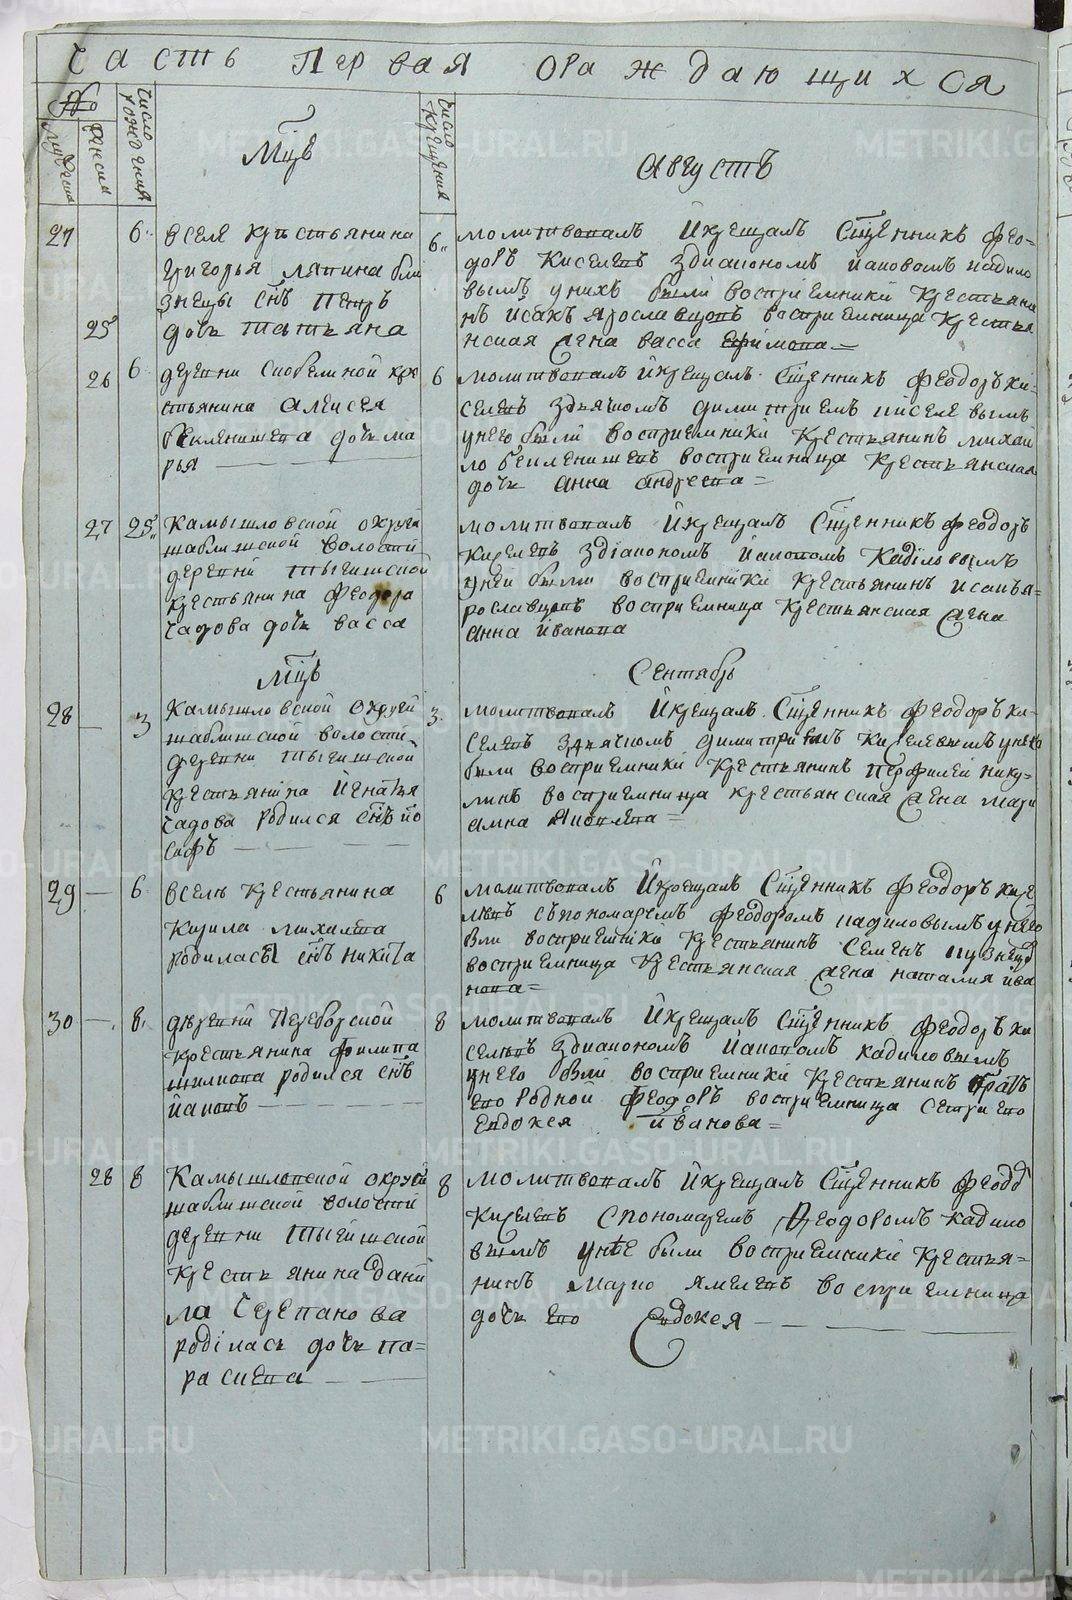 Часть Первая ораждающихся
№
мужеска
женска
число рождения
число крещения
Мцъ
Августъ
27 6
вселе крестьянина
григорья ляпина бли
знецы снъ петръ
25 дочь татьяна
6
молитвовалъ и крещалъ Сщенникъ Фео=
доръ Киселевъ здиакономъ иаковомъ кадило
вымъ унихъ были восприемники крестьяни
нъ исакъ ярославцовъ восприемница крестья
нская жена васса ефимова
26 6
деревни скобелиной кре
стьянина алексея
беклемишева дочь ма
рья
6
молитвовалъ и крещалъ Сщенникъ феодоръ ки=
селевъ здьячкомъ димитриемъ киселевымъ
унего были восприемники крестьянинъ михаи
ло беклемишевъ восприемница крестьянская
дочь анна андреева =
27 25
Камышловской округи
шаблишской волости
деревни тыгишской
крестьянина феодора
чадова дочь васса
молитвовалъ и крещалъ Сщенникъ феодоръ
Киселевъ здиакономъ иаковомъ Кадиловымъ
уней были восприемники крестьянинъ исакъ я=
рославцовъ восприемница крестьянская жена
анна иванова
Мцъ
Сентябрь
28 3
Камышловской округи
шаблишской волости
деревни тыгишской
крестьянина игнатья
чадова родился снъ ио
сафъ
3
молитвовалъ и крещалъ Сщенникъ феодоръ ки=
селевъ здьячкомъ димитриемъ киселевымъ унего
были восприемники крестьянинъ перфилей нику=
линъ восприемница крестьянская жена мари
амна яковлева =
29 6
вселе крестьянина
Кирила михилева
родилася снъ никита
6
молитвовалъ и крещалъ Сщенникъ феодоръ кисе
левъ съпономаремъ феодоромъ кадиловымъ унего
бли восприемники крестьянинъ Семенъ кузнецов
восприемница крестьянская жена наталия ива
нова =
30 8
деревни Переборской
крестьянина филипа
шилкова родился снъ
иаковъ
8
молитвовалъ и крещалъ Сщенникъ феодоръ ки
селевъ здиакономъ иаковомъ кадиловымъ
унего бли восприемники крестьянинъ братъ
ево родной феодоръ восприемница сестри ево
евдокея иванова =
28 8
Камышловской округи
шаблишской волости
деревни тыгишской
крестьянина дани
ла Черепанова
родилась дочь па=
расиева
8
молитвовалъ и крещалъ Сщенникъ феодор
Киселевъ спономаремъ феодоромъ кадило
вымъ унее были восприемники крестья=
нинъ марко ямелевъ восприемница
дочь ево Евдокея